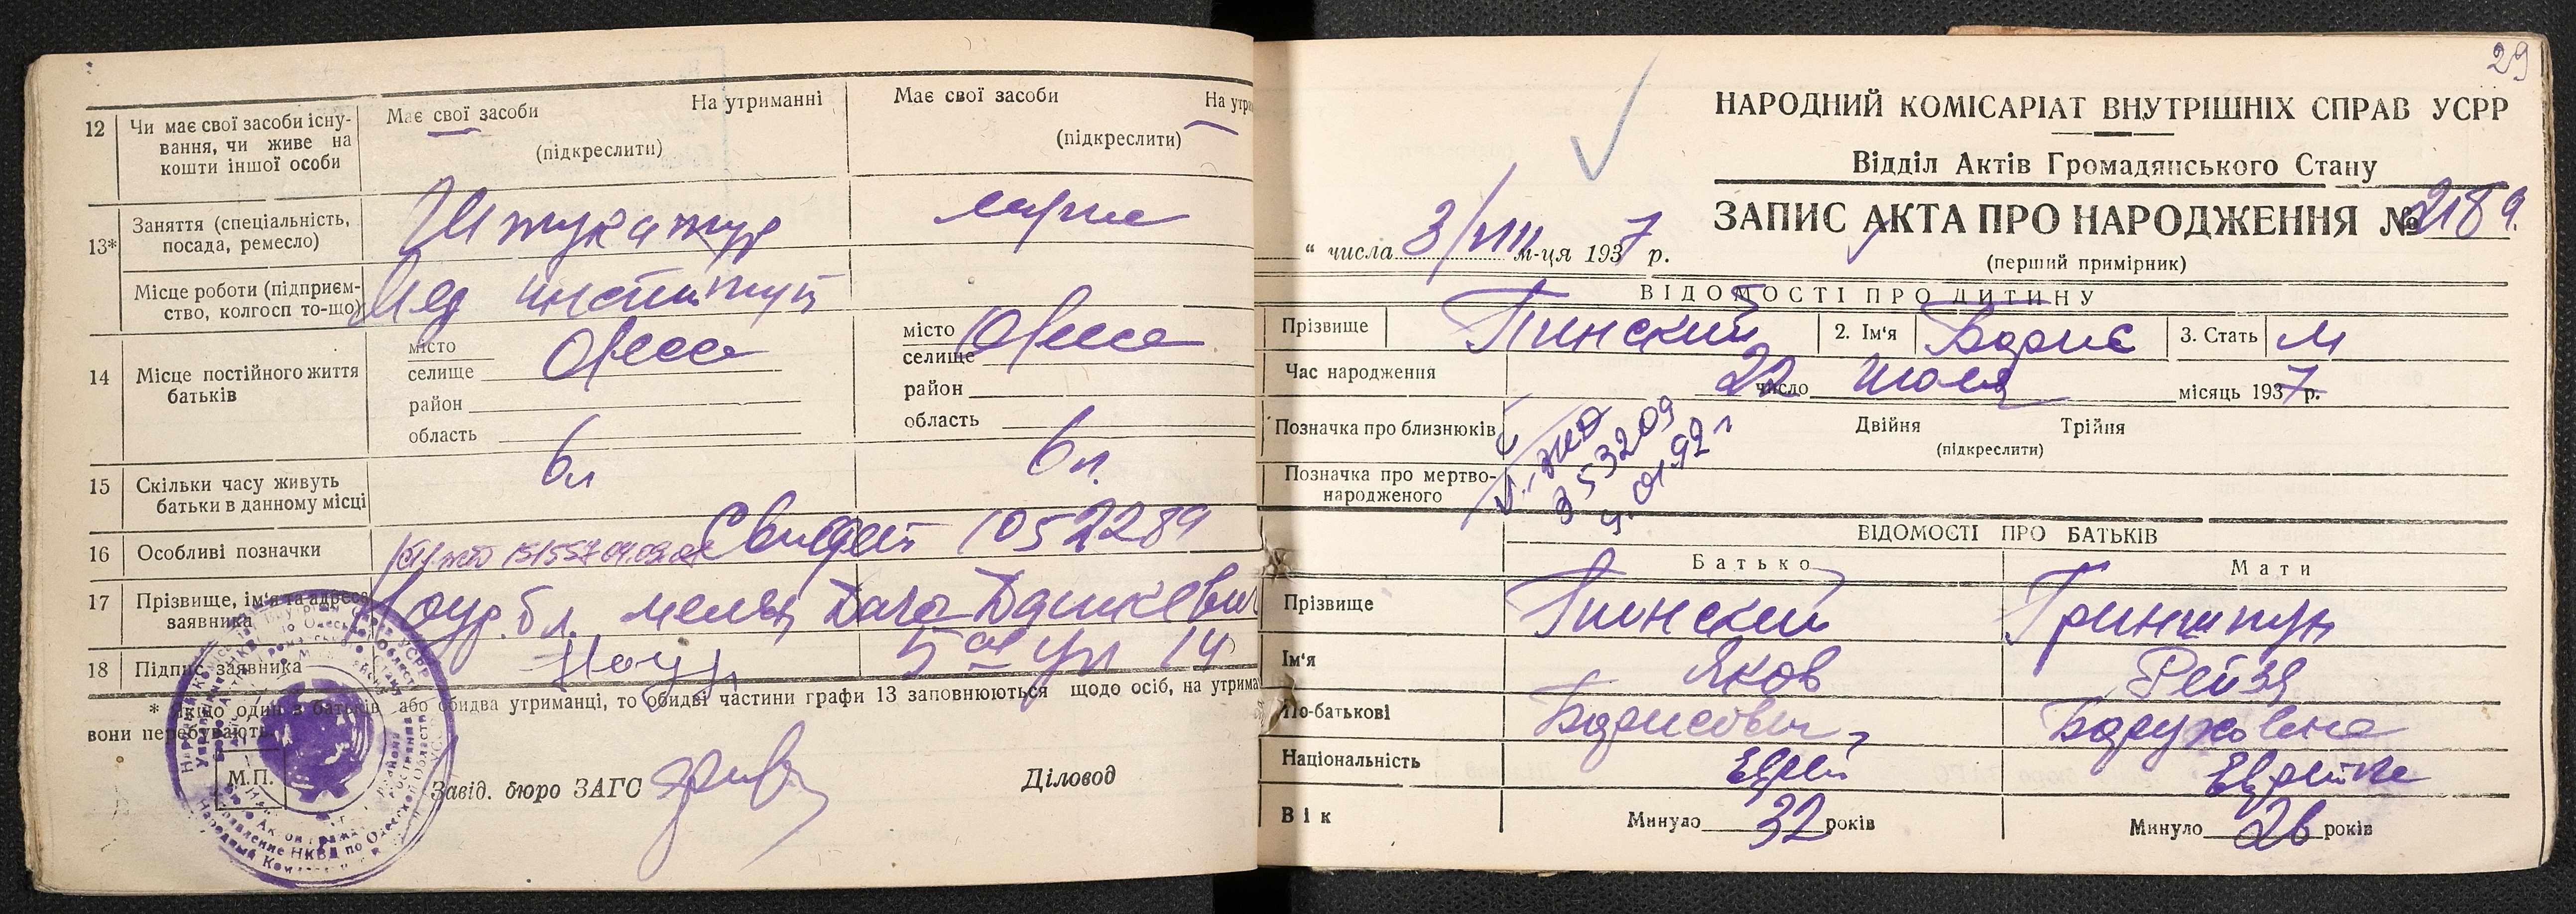 12 Чи має свої засоби існу-
вання, чи живе на
кошти іншої особи
Має свої засоби На утриманні
(підкреслити)
Має свої засоби На утри
(підкреслити)
13* Заняття (спеціальність,
посада, ремесло)
Штукатур
Місце роботи (підприєм-
ство, колгосп то-що)
Мед институт
14 Місце постійного життя
батьків
місто
селище Одесса
район
область
місто Одесса
селище
район
область
15 Скільки часу живуть
батьки в данному місці
6л 6л.
16 Особливі позначки
Свидет 1052289
17 Прізвище, ім'я та адреса
заявника
Дача Дашкевич
5ая ул 14
18 Підпис заявника
* Якщо один з батьків або обидва утриманні, то обидві частини графи 13 заповнюються щодо осіб, на утрима
вони перебувають.
М.П.
Завід. бюро ЗАГС
Діловод
29
НАРОДНИЙ КОМІСАРІАТ ВНУТРІШНІХ СПРАВ УСРР
Відділ Актів Громадянського Стану
ЗАПИС АКТА ПРО НАРОДЖЕННЯ № 2189.
" числа 3/VIII м-ця 1937 р.
(перший примірник)
ВІДОМОСТІ ПРО ДИТИНУ
Прізвище Пинский 2. Ім'я Борис 3. Стать М
Час народження 22 число Июля місяць 1937 р.
Позначка про близнюків Двійня Трійня
(підкреслити)
Позначка про мертво-
народженого
353209
ВІДОМОСТІ ПРО БАТЬКІВ
Батько Мати
Прізвище Пинский Гринштун
Ім'я Яков Рейзя
По-батькові Борисович Боруховна
Національність Еврей Еврейка
Вік Минуло 32 років Минуло 26 років